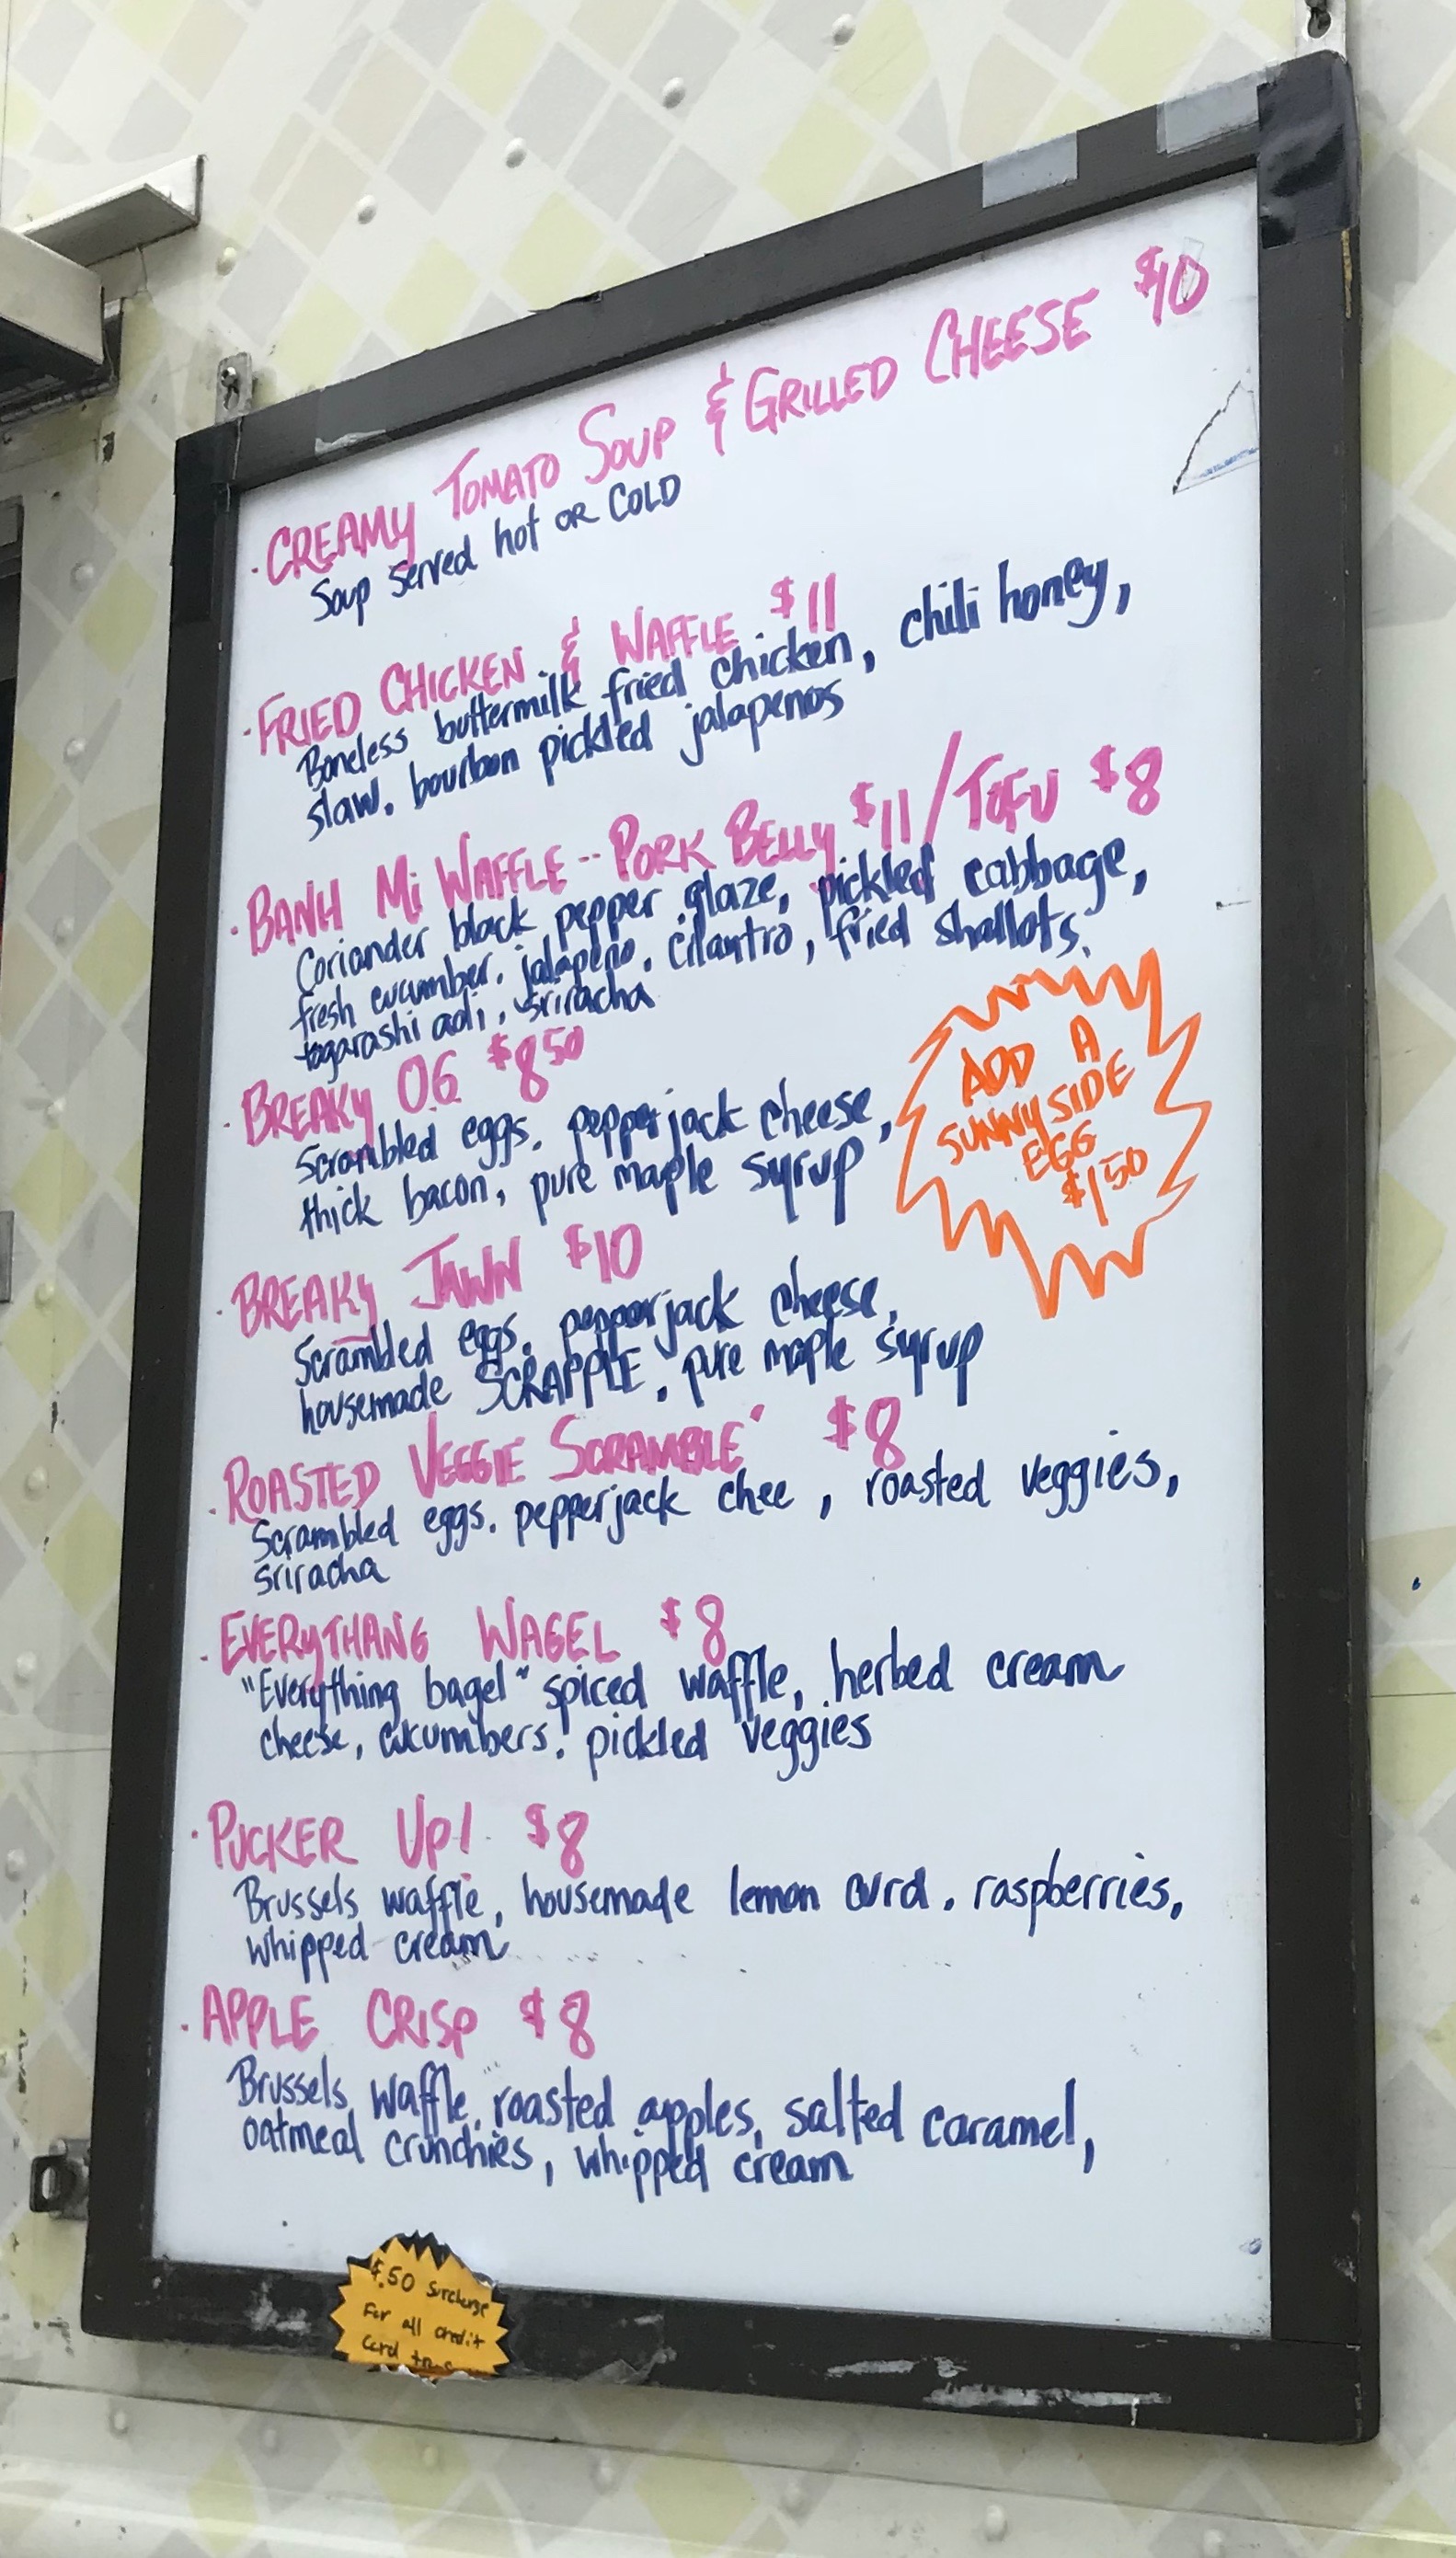 · CREAMY TOMATO SOUP & GRILLED CHEESE $10
Soup served hot OR COLD
· FRIED CHICKEN & WAFFLE $11
Boneless buttermilk fried chicken, chili honey,
slaw, bourbon pickled jalapenos
· BANH Mi WAFFLE -- PORK BELLY $11 / TOFU $8
Coriander black pepper glaze, pickled cabbage,
fresh cucumber, jalapeno, cilantro, fried shallots,
togarashi aoli, sriracha
· BREAKY OG $8.50
Scrambled eggs, pepperjack cheese,
thick bacon, pure maple syrup
ADD A
SUNNYSIDE
EGG
$1.50
· BREAKY JAWN $10
Scrambled eggs, pepperjack cheese,
housemade SCRAPPLE, pure maple syrup
· ROASTED VEGGIE SCRAMBLE' $8
Scrambled eggs, pepperjack chee , roasted veggies,
sriracha
· EVERYTHANG WAGEL $8
"Everything bagel" spiced waffle, herbed cream
cheese, cucumbers, pickled veggies
· PUCKER UP! $8
Brussels waffle, housemade lemon curd, raspberries,
whipped cream
· APPLE CRISP $8
Brussels waffle, roasted apples, salted caramel,
oatmeal crunchies, whipped cream
$.50 Surcharge
For all credit
Card